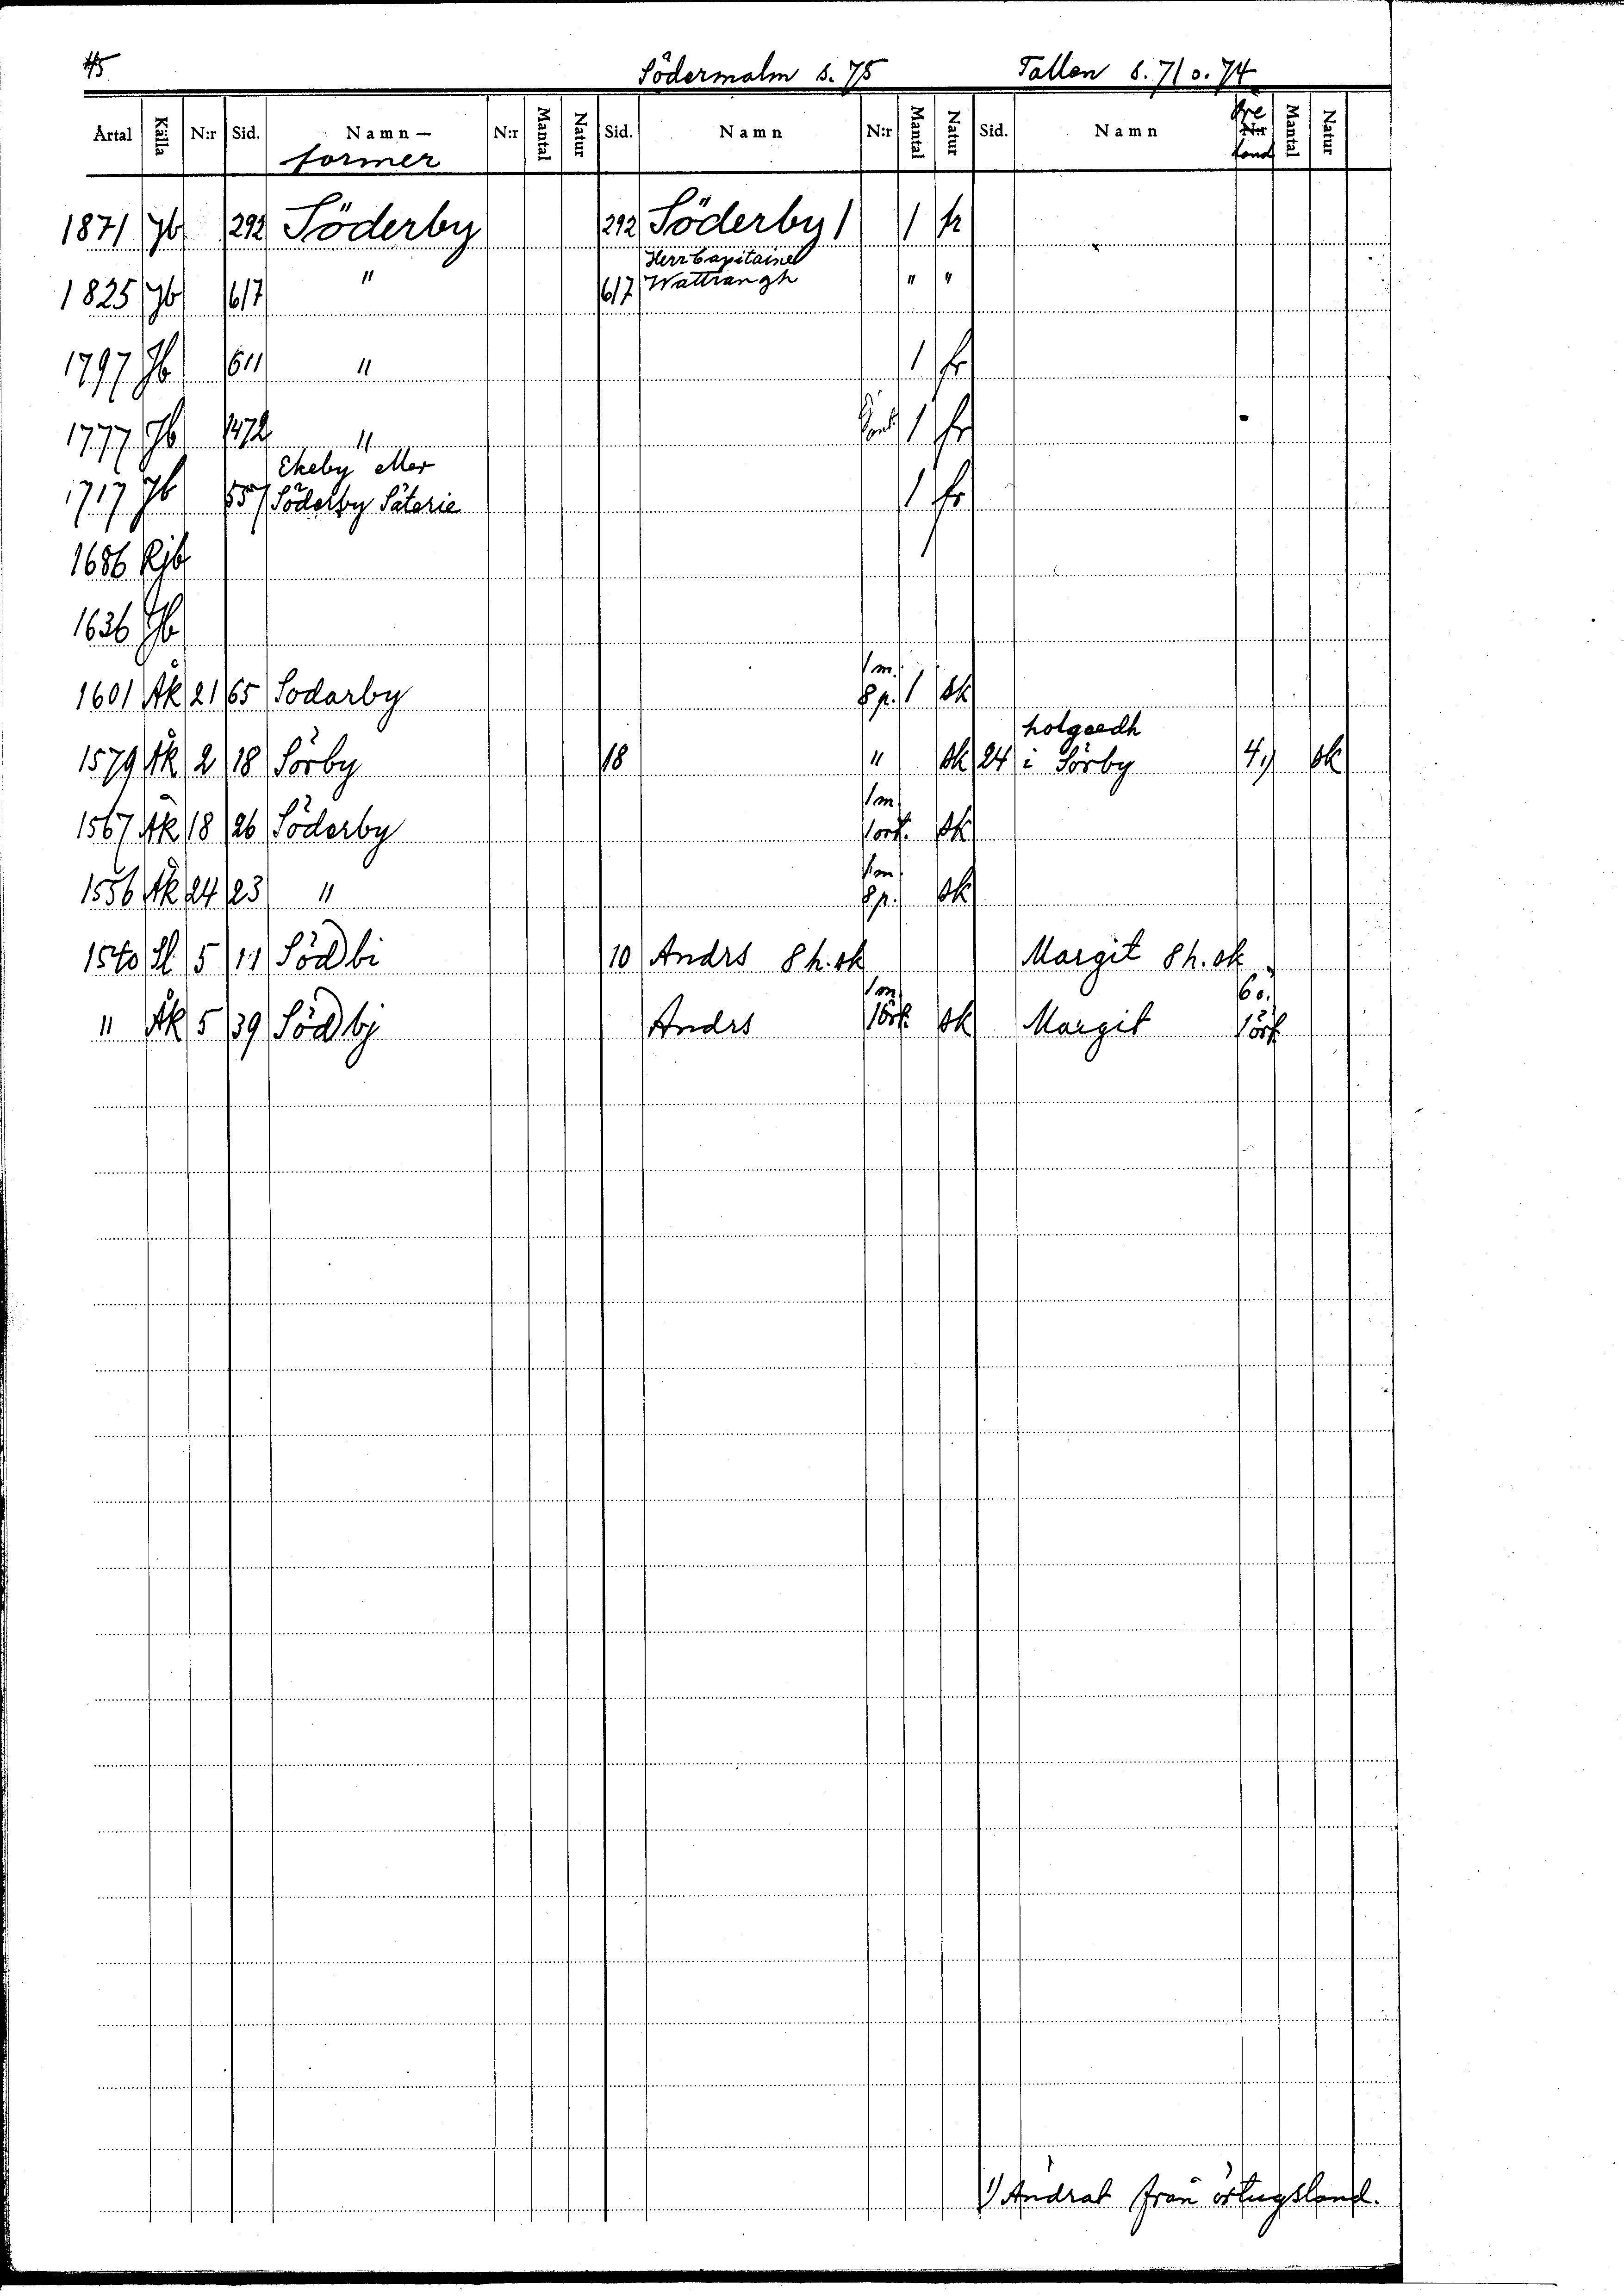 45 Södermalm s. 75 Tallen s. 71 o. 74
Årtal Källa N:r Sid. Namn- former N:r Mantal Natur Sid. Namn N:r Mantal Natur Sid. Namn Öre N:r land Mantal Natur
1871 Jb 292 Söderby 292 Söderby 1 1 fr
Herr Capitaine
1825 Jb 617 " 617 Wattrangh " "
1797 Jb 611 " 1 fr
1777 Jb 1472 " 1 fr
Ekeby eller
1717 Jb 557 Söderby Säterie 1 fr
1686 Rjb
1636 Jb
1 m.
1601 Åk 21 65 Sodarby 8 p. 1 sk
holgerdh
1579 Åk 2 18 Sörby 18 " sk 24 i Sörby 4 1) sk
1 m
1567 Åk 18 26 Söderby 1 ört. sk
1 m
1556 Åk 24 23 " 8 p. sk
1540 Sl 5 11 Södbi 10 Andrs 8 h. sk Margit 8 h. sk
1 m 6 o.
" Åk 5 39 Södbj Andrs 1 ört. sk Margit 1 ört
1) Ändrat från örtugsland.